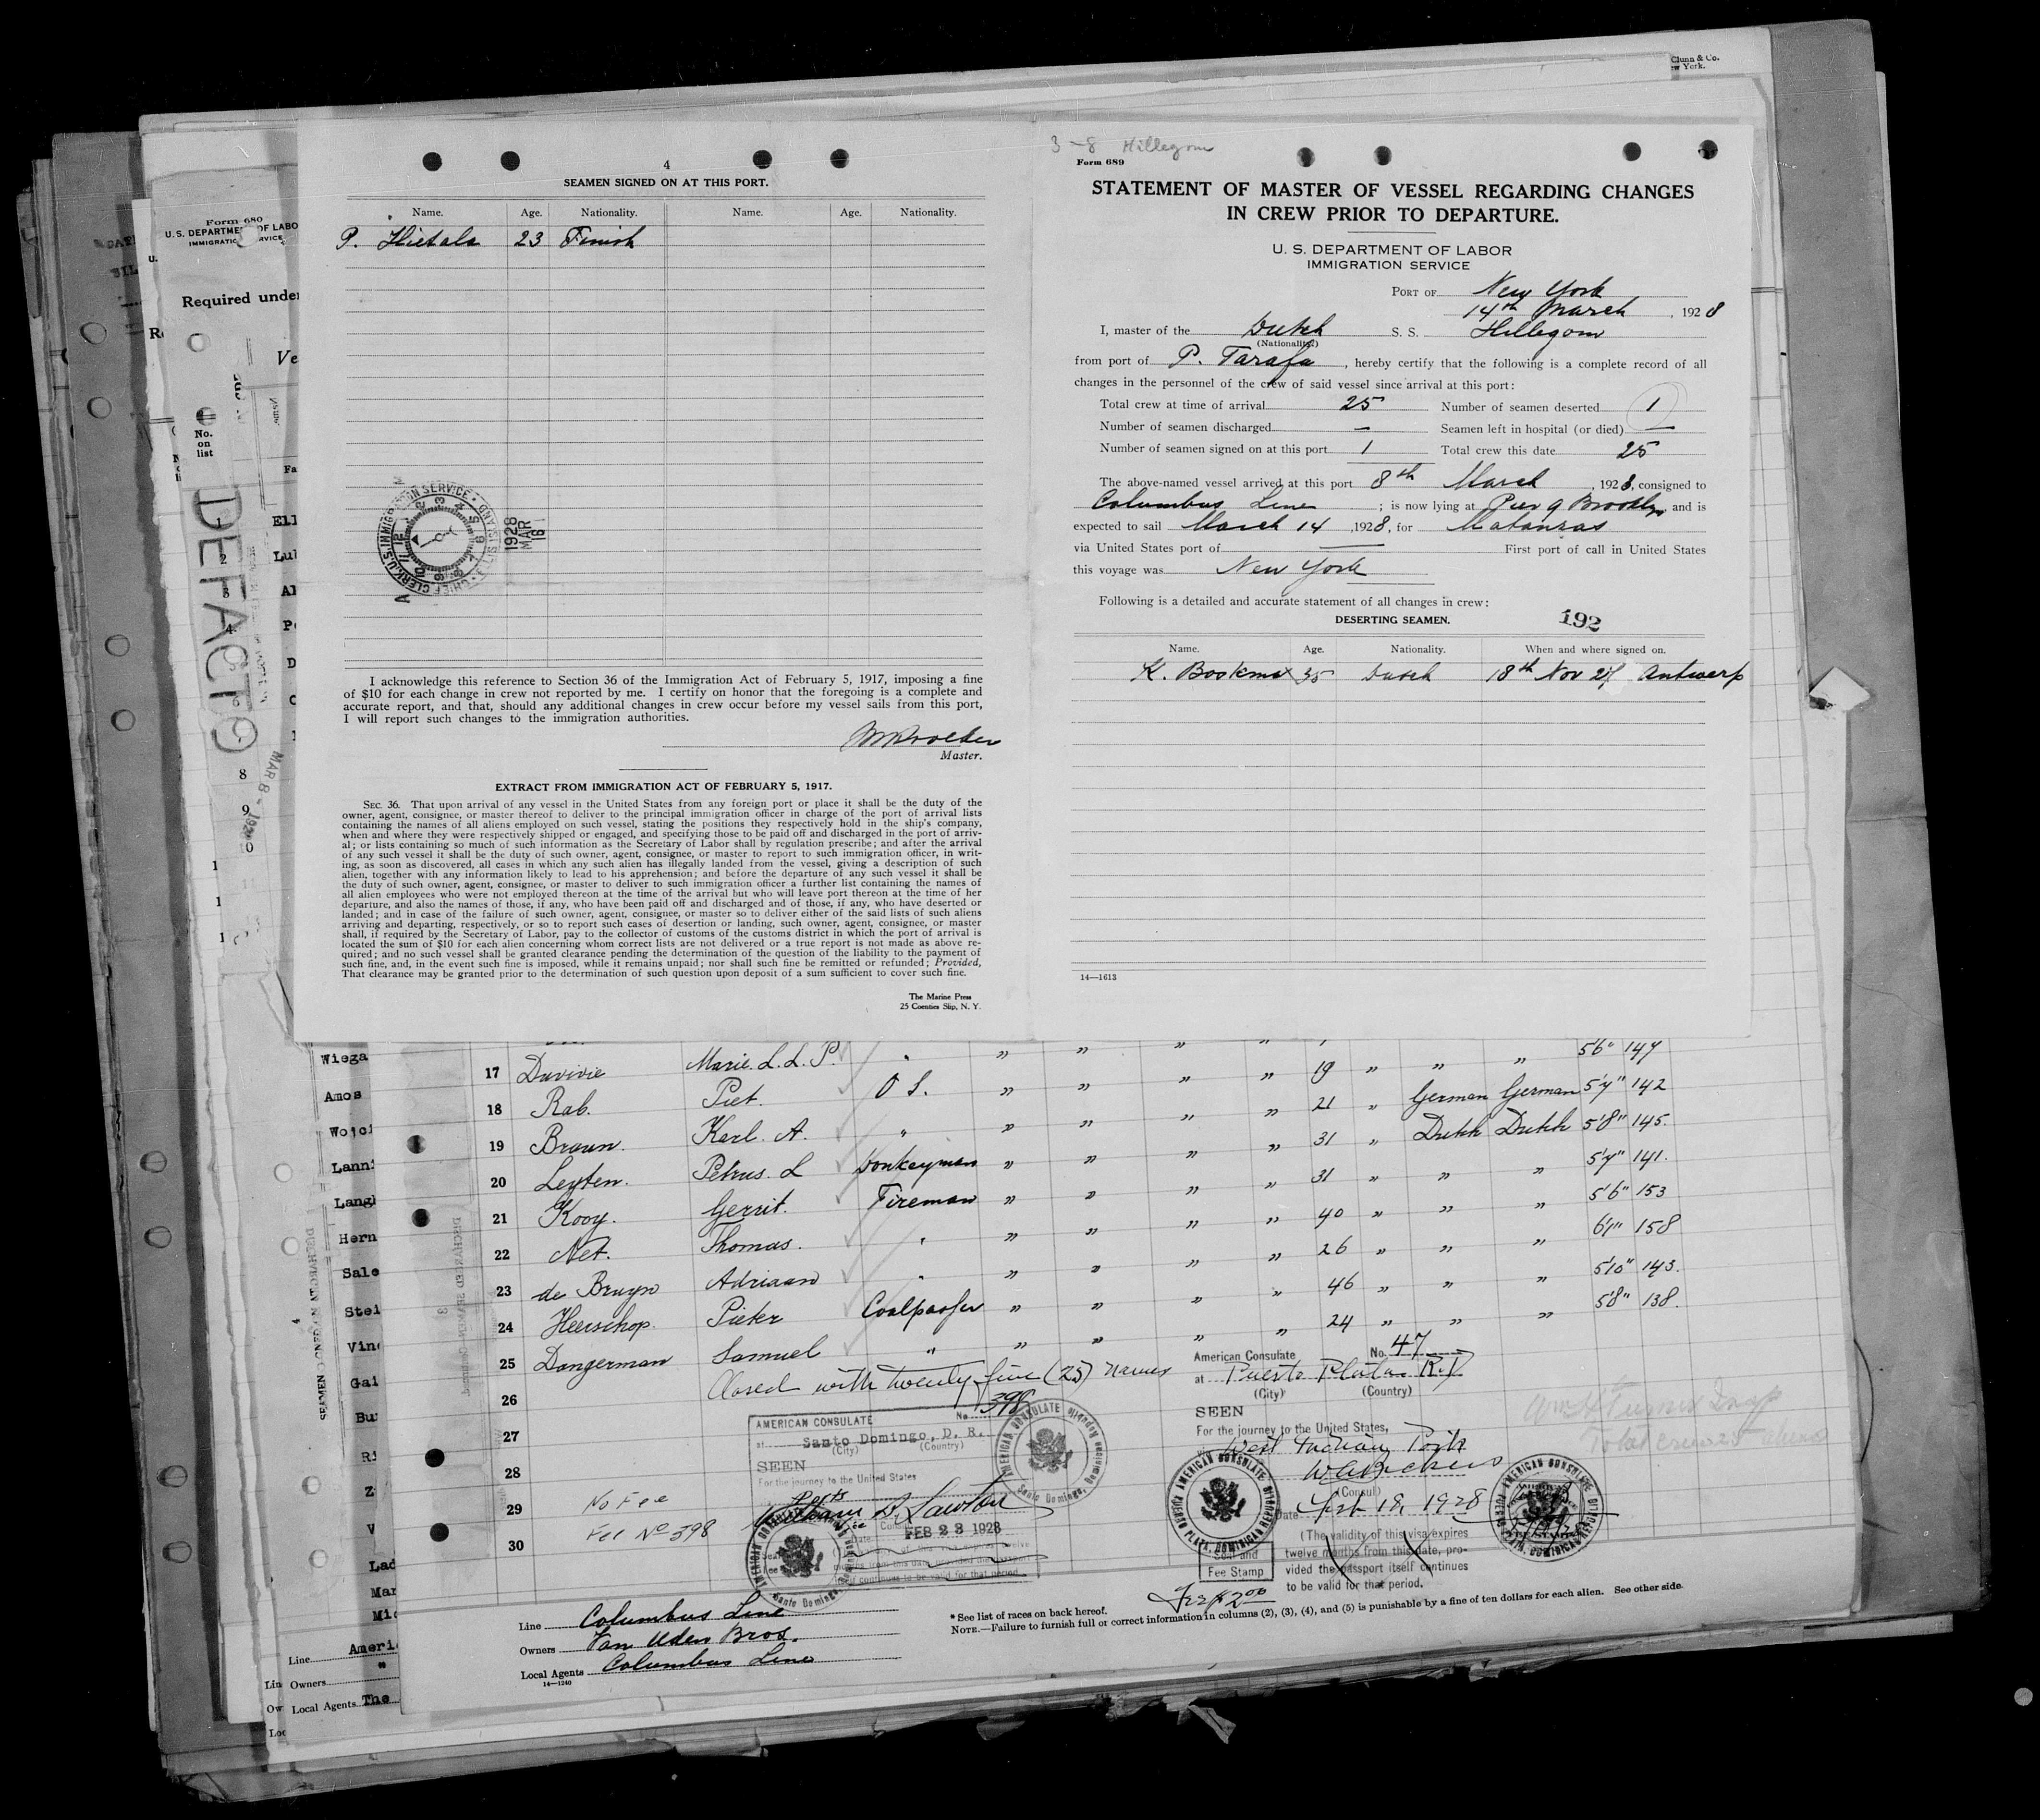 Clunn & Co.
ew York.
Form 680
U. S. DEPARTMENT OF LABO
IMMIGRATION SERVICE
Required under
No.
on
list
DEFACTO
MAR 8 - 1928
4
SEAMEN SIGNED ON AT THIS PORT.
Name. Age. Nationality. Name. Age. Nationality.
P. Hietala 23 Finish
CHIEF CLERK, U.S. IMMIGRATION SERVICE · ELLIS ISLAND
1928
MAR
16
I acknowledge this reference to Section 36 of the Immigration Act of February 5, 1917, imposing a fine
of $10 for each change in crew not reported by me. I certify on honor that the foregoing is a complete and
accurate report, and that, should any additional changes in crew occur before my vessel sails from this port,
I will report such changes to the immigration authorities.
Master.
EXTRACT FROM IMMIGRATION ACT OF FEBRUARY 5, 1917.
SEC. 36. That upon arrival of any vessel in the United States from any foreign port or place it shall be the duty of the
owner, agent, consignee, or master thereof to deliver to the principal immigration officer in charge of the port of arrival lists
containing the names of all aliens employed on such vessel, stating the positions they respectively hold in the ship's company,
when and where they were respectively shipped or engaged, and specifying those to be paid off and discharged in the port of arriv-
al; or lists containing so much of such information as the Secretary of Labor shall by regulation prescribe; and after the arrival
of any such vessel it shall be the duty of such owner, agent, consignee, or master to report to such immigration officer, in writ-
ing, as soon as discovered, all cases in which any such alien has illegally landed from the vessel, giving a description of such
alien, together with any information likely to lead to his apprehension; and before the departure of any such vessel it shall be
the duty of such owner, agent, consignee, or master to deliver to such immigration officer a further list containing the names of
all alien employees who were not employed thereon at the time of the arrival but who will leave port thereon at the time of her
departure, and also the names of those, if any, who have been paid off and discharged and of those, if any, who have deserted or
landed; and in case of the failure of such owner, agent, consignee, or master so to deliver either of the said lists of such aliens
arriving and departing, respectively, or so to report such cases of desertion or landing, such owner, agent, consignee, or master
shall, if required by the Secretary of Labor, pay to the collector of customs of the customs district in which the port of arrival is
located the sum of $10 for each alien concerning whom correct lists are not delivered or a true report is not made as above re-
quired; and no such vessel shall be granted clearance pending the determination of the question of the liability to the payment of
such fine, and, in the event such fine is imposed, while it remains unpaid; nor shall such fine be remitted or refunded; Provided,
That clearance may be granted prior to the determination of such question upon deposit of a sum sufficient to cover such fine.
The Marine Press
25 Coenties Slip, N. Y.
3-8 Hillegom
Form 689
STATEMENT OF MASTER OF VESSEL REGARDING CHANGES
IN CREW PRIOR TO DEPARTURE.
U. S. DEPARTMENT OF LABOR
IMMIGRATION SERVICE
PORT OF New York
14th March, 1928
I, master of the Dutch S. S. Hillegom
(Nationality)
from port of P. Tarafa, hereby certify that the following is a complete record of all
changes in the personnel of the crew of said vessel since arrival at this port:
Total crew at time of arrival 25 Number of seamen deserted 1
Number of seamen discharged — Seamen left in hospital (or died) —
Number of seamen signed on at this port 1 Total crew this date 25
The above-named vessel arrived at this port 8th March, 1928, consigned to
Columbus Line; is now lying at Pier 9 Brooklyn and is
expected to sail March 14, 1928, for Matanzas
via United States port of — First port of call in United States
this voyage was New York
Following is a detailed and accurate statement of all changes in crew:
DESERTING SEAMEN. 192
Name. Age. Nationality. When and where signed on.
K. Boskma 35 Dutch 18th Nov 27 Antwerp
14—1613
17 Duvivie Marie. L. L. P. " " " " " 19 " " " 5'6" 147
18 Rab. Piet. O S. " " " " 21 " German German 5'7" 142
19 Braun. Karl. A. " " " " " 31 " Dutch Dutch 5'8" 145.
20 Leyten. Petrus. L Donkeyman " " " " 31 " " " 5'7" 141.
21 Kooy. Gerrit. Fireman " " " " 40 " " " 5'6" 153
22 Net. Thomas. " " " " " 26 " " " 6'1" 158
23 de Bruyn Adriaan " " " " " 46 " " " 5'10" 143.
24 Heerschop. Pieter Coalpasser " " " " 24 " " " 5'8" 138.
25 Dangerman Samuel " " " " "
26 Closed with twenty-five (25) names
27
28
29 No Fee
30 Fee No 398
AMERICAN CONSULATE No. 398
at Santo Domingo, D. R.
(City) (Country)
SEEN
For the journey to the United States
FEB 23 1928
AMERICAN CONSULATE Santo Domingo, Dominican Republic
American Consulate No. 47
at Puerto Plata R.D
(City) (Country)
SEEN
For the journey to the United States,
via West Indian Ports
(Consul)
Date Feb 18, 1928
(The validity of this visa expires
twelve months from this date, pro-
vided the passport itself continues
to be valid for that period.
Seal and
Fee Stamp
AMERICAN CONSULATE PUERTO PLATA, DOMINICAN REPUBLIC
Fee $2.00
Line Columbus Line
Owners Van Uden Bros.
Local Agents Columbus Line
14—1240
* See list of races on back hereof.
NOTE.—Failure to furnish full or correct information in columns (2), (3), (4), and (5) is punishable by a fine of ten dollars for each alien. See other side.
Wiega
Amos
Wojci
Lanni
Langh
Hern
Sale
Stei
Vinc
Gai
Line Ameri
Owners "
Local Agents The